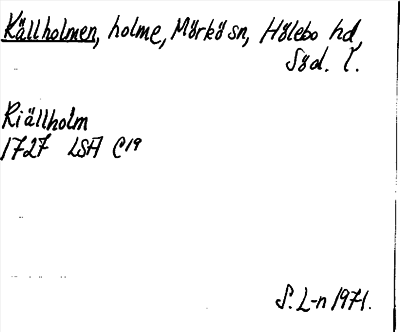 Källholmen, holme, Mörkö sn, Hölebo hd,
Söd. l.
Kiällholm
1727 LSA C19
S. L-n 1971.